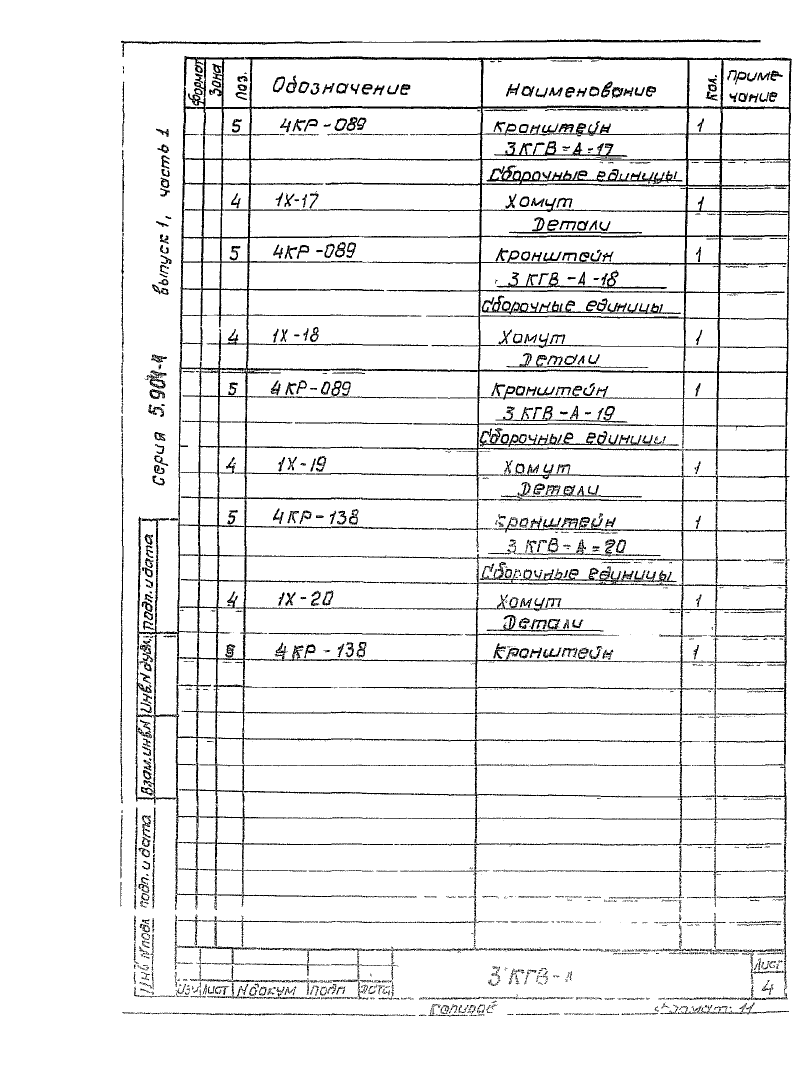 Формат Зона Поз. Обозначение Наименование Кол. Приме-
чание
5 4КР-089 Кронштейн 1
3КГВ-А-17
Сборочные единицы
4 1Х-17 Хомут 1
Детали
5 4КР-089 Кронштейн 1
3 КГВ-А-18
Сборочные единицы
4 1Х-18 Хомут 1
Детали
5 4КР-089 Кронштейн 1
3 КГВ-А-19
Сборочные единицы
4 1Х-19 Хомут 1
Детали
5 4КР-138 Кронштейн 1
3 КГВ-А-20
Сборочные единицы
4 1Х-20 Хомут 1
Детали
5 4КР-138 Кронштейн 1
серия 5.904-4 выпуск 1, часть 1
Подп. и дата
Инв.N дубл.
Взам.инв.N
подп. и дата
Инв N подл
Изм Лист N докум подп Дата
3 КГВ-А
Лист
4
Копировал
Формат 11